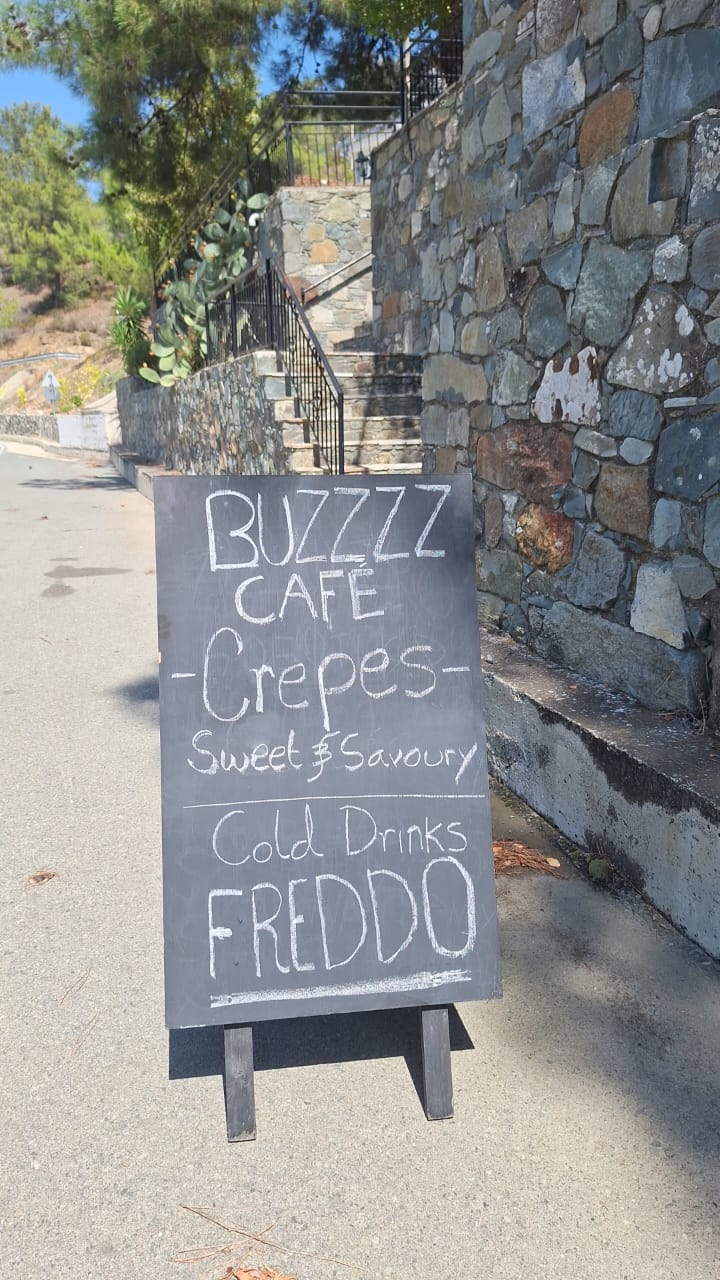 BUZZZZ
CAFÉ
-Crepes-
Sweet & Savoury
Cold Drinks
FREDDO